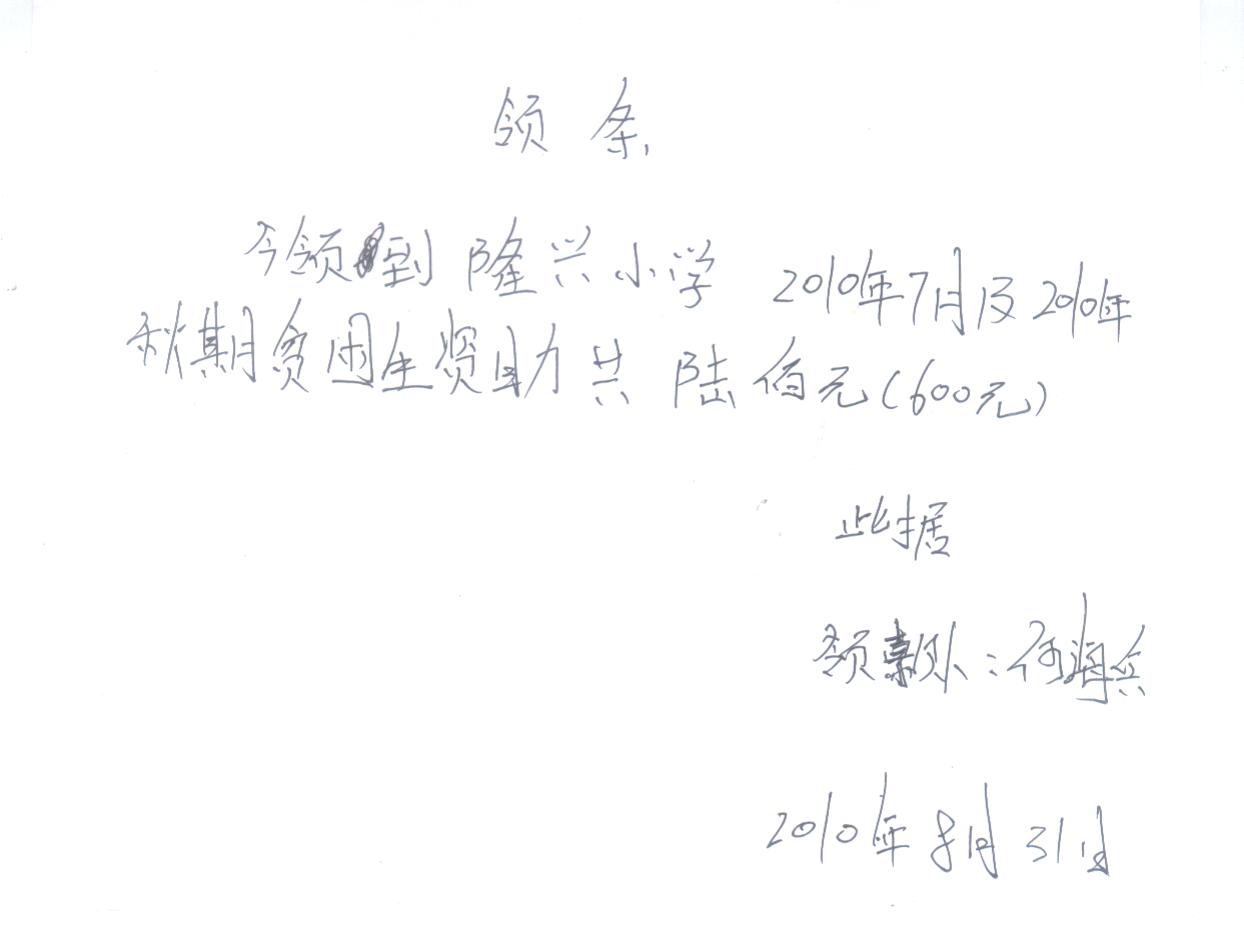 领 条
今领到 隆兴小学 2010年7月及2010年
秋期贫困生资助共 陆佰元(600元)
此据
领款人:何海兵
2010年8月31日